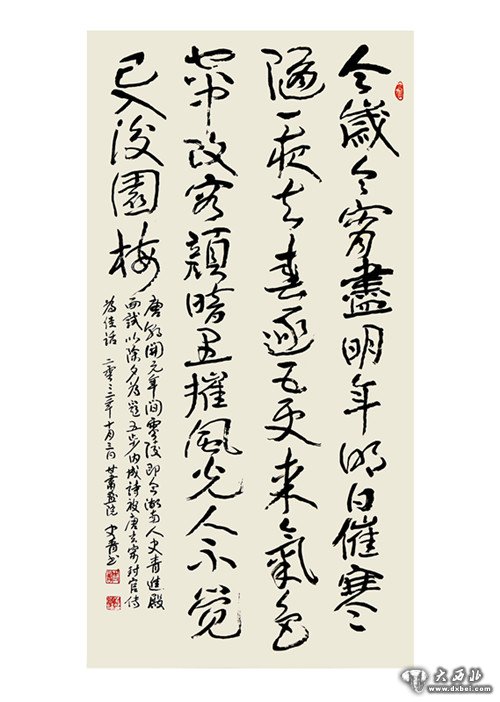 今歲今宵盡明年明日催寒
隨一夜去春逐五更来氣色
空中改容顔暗里摧風光人不覺
已入後園梅
唐朝開元年间零陵即今湖南人史青進殿
面試以除夕為題五步内成詩被唐玄宗封官傳
為佳话 十月三日 甘肅畫院 史青书
大西北
www.dxbei.com